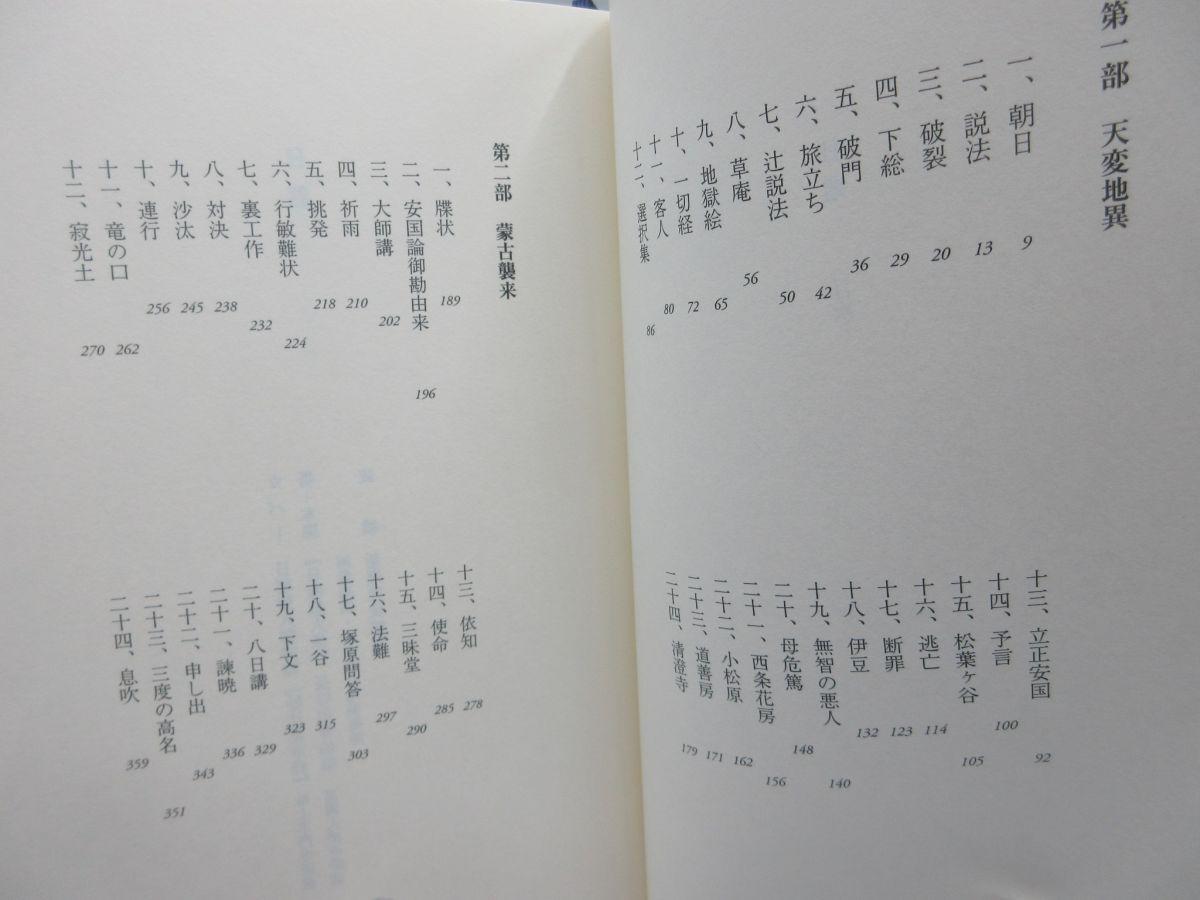 第一部　天変地異
一、朝日 9
二、説法 13
三、破裂 20
四、下総 29
五、破門 36
六、旅立ち 42
七、辻説法 50
八、草庵 56
九、地獄絵 65
十、一切経 72
十一、客人 80
十二、選択集 86
十三、立正安国 92
十四、予言 100
十五、松葉ヶ谷 105
十六、逃亡 114
十七、断罪 123
十八、伊豆 132
十九、無智の悪人 140
二十、母危篤 148
二十一、西条花房 156
二十二、小松原 162
二十三、道善房 171
二十四、清澄寺 179
第二部　蒙古襲来
一、牒状 189
二、安国論御勘由来 196
三、大師講 202
四、祈雨 210
五、挑発 218
六、行敏難状 224
七、裏工作 232
八、対決 238
九、沙汰 245
十、連行 256
十一、竜の口 262
十二、寂光土 270
十三、依知 278
十四、使命 285
十五、三昧堂 290
十六、法難 297
十七、塚原問答 303
十八、一谷 315
十九、下文 323
二十、八日講 329
二十一、諫暁 336
二十二、申し出 343
二十三、三度の高名 351
二十四、息吹 359